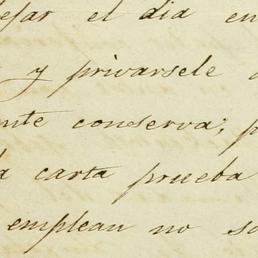 el dia en
y privarsele
conserva;
carta prueba
emplean no